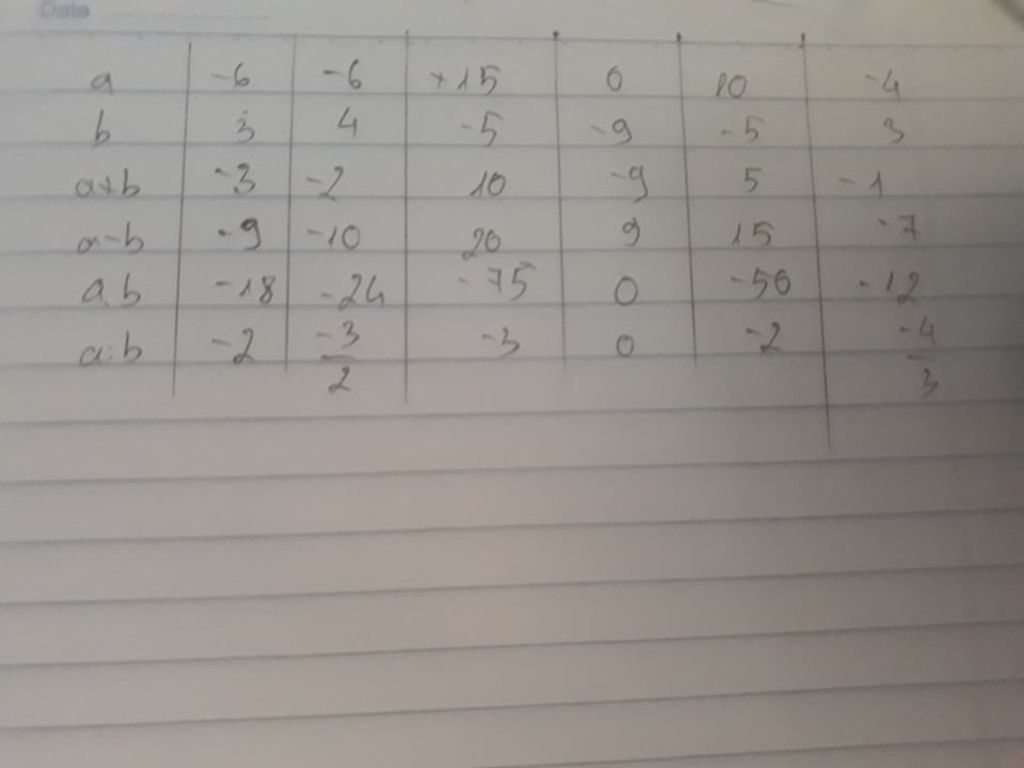 Date
a -6 -6 +15 0 10 -4
b 3 4 -5 -9 -5 3
a+b -3 -2 10 -9 5 -1
a-b -9 -10 20 9 15 -7
a.b -18 -24 -75 0 -50 -12
a:b -2 -3/2 -3 0 -2 -4/3